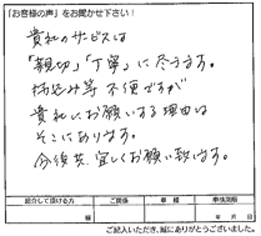 「お客様の声」をお聞かせ下さい!
貴社のサービスは
「親切」「丁寧」に尽きます。
振込み等 不便ですが
貴社にお願いする理由は
そこにあります。
今後共、宜しくお願い致します。
紹介して頂ける方 ご関係 車種 車検期限
様 年 月 日
ご記入いただき、誠にありがとうございました。